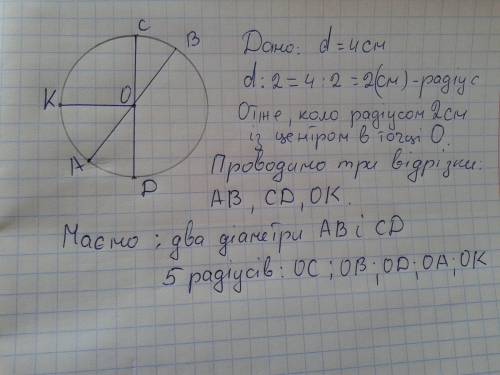 C
B
K
O
A
D
Дано: d = 4 см
d : 2 = 4 : 2 = 2(см) - радіус
Отже, коло радіусом 2см
із центром в точці О.
Проводимо три відрізки:
АВ, CD, ОК.
Маємо: два діаметри АВ і CD
5 радіусів: ОС; ОВ; OD; ОА; ОК